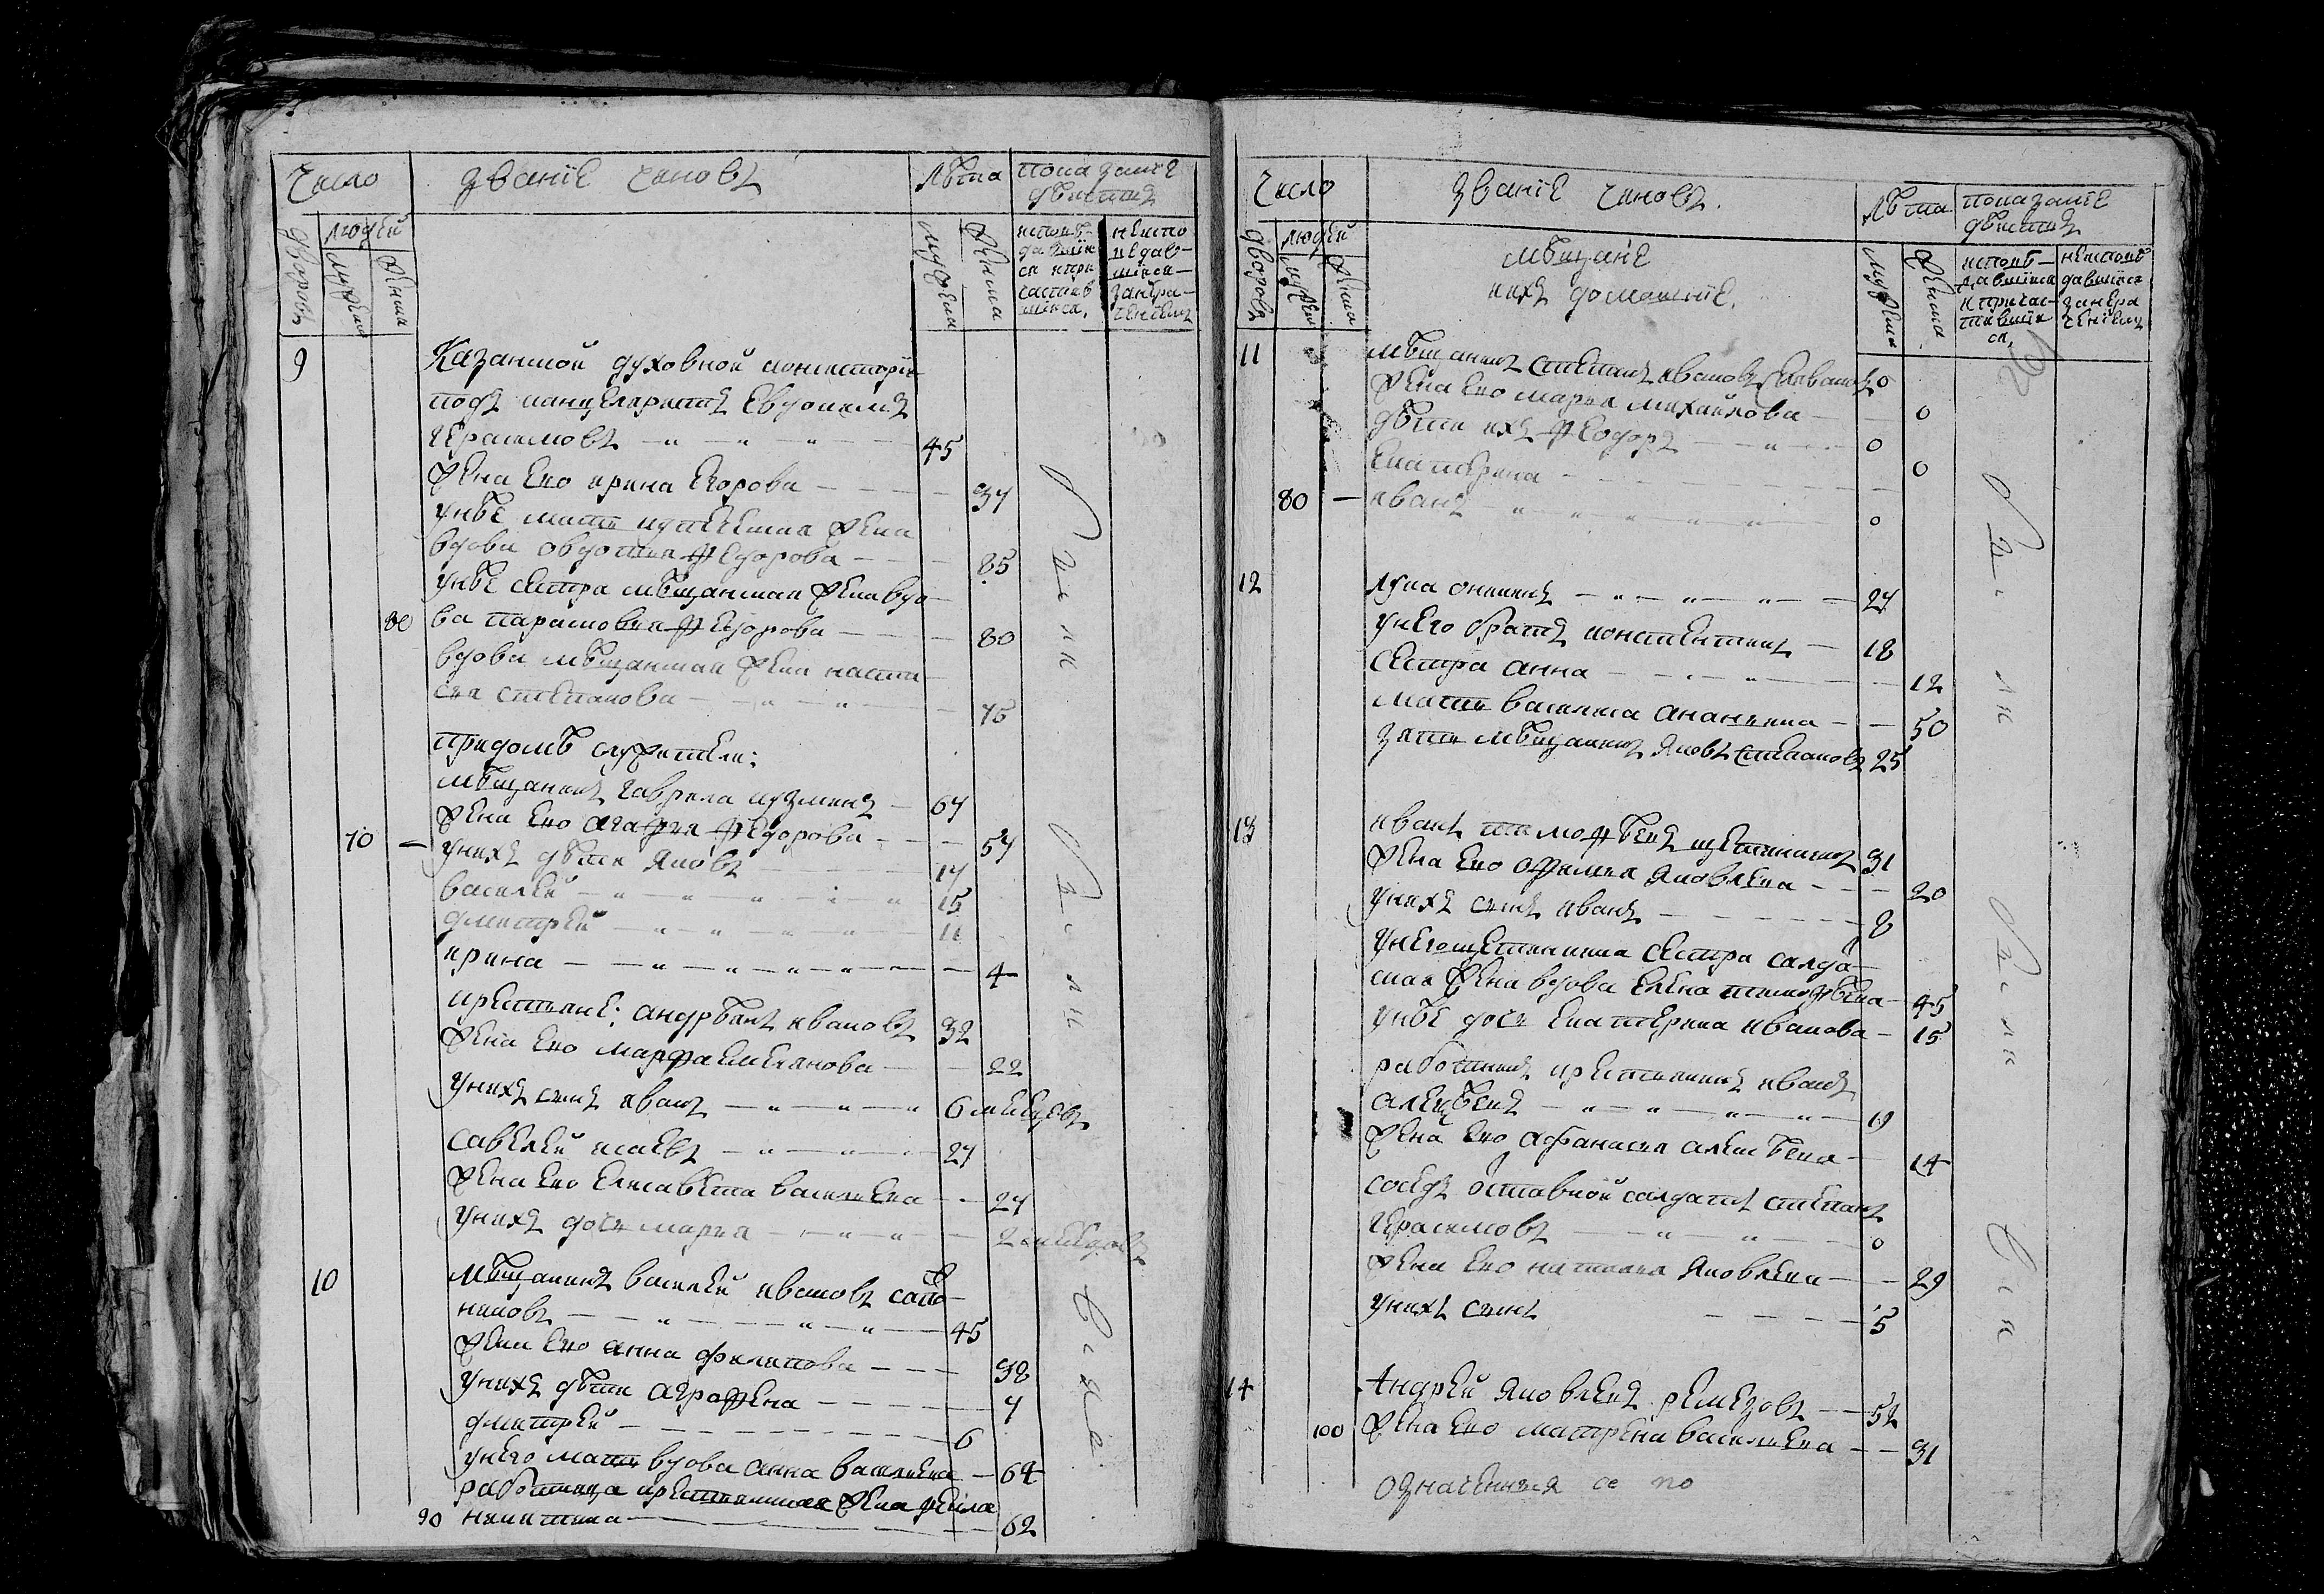 Число
званїе чиновъ
Лѣта
показанїе дѣйствъ
дворовъ
людей
мужеска
женска
мужеска
женска
исповѣдавшїеся и причастившїеся
неисповедавшїеся за нерачениемъ
9
Казанской духовной консисторїи
подъ канцеляристъ Евдокимъ
Герасимовъ 45
жена ево ирина Егорова 37
у нѣе мать купеческая жена
вдова овдотья Федорова 85
у нѣе сестра мѣщанская жена вдо
80 ва парасковья Федорова 80
вдова мѣщанская жена наста
сия степанова 75
при домѣ служители:
мѣщанинъ гаврила кузминъ 67
жена ево агафья Федорова 57
70 у нихъ дѣти Яковъ 17
василей 15
дмитрей 11
ирина 4
крестьяне: андрѣянъ ивановъ 32
жена ево марфа емельянова 22
у нихъ сынъ иванъ 6 месецовъ
савелей исаевъ 27
жена ево елисавета васильева 27
у нихъ дочь марья 2 месецовъ
10 мѣщанинъ василей ивановъ сапо
никовъ 45
жена ево анна филипова 38
у нихъ дѣти аграфена 7
дмитрей 6
у него мать вдова анна васильева 64
работница крестьянская жена
90 никитина 62
Число
званїе чиновъ.
Лѣта
показанїе дѣйствъ
дворовъ
людей
мужеска
женска
мѣщанѣ
и ихъ домашнїе.
мужеска
женска
исповѣдавшїеся и причастившїеся
неисповѣдавшїеся за нерачениемъ
11 мѣщанинъ степанъ ивановъ 0
жена ево марья михайлова 0
дѣти ихъ Феодоръ 0
екатерина 0
80 иванъ 0
12 лука 27
у него братъ констентинъ 18
сестра анна 12
мать василиса ананьина 50
зять мѣщанинъ Яковъ степановъ 25
13 иванъ тимофѣевъ щетинкинъ 31
жена ево офимья Яковлева 20
у нихъ сынъ иванъ 8
у него щетинкина сестра салда
ская жена вдова елена тимофѣева 45
у нѣе дочь екатерина иванова 15
работникъ крестьянинъ иванъ
алексѣевъ 19
жена ево афанасья алексѣева 14
соседъ отставной салдатъ степанъ
герасимовъ 0
жена ево наталья Яковлева 29
у нихъ сынъ 5
14 Андрей Яковлевъ ремезовъ 52
100 жена ево матрена васильева 31
означенныя се по